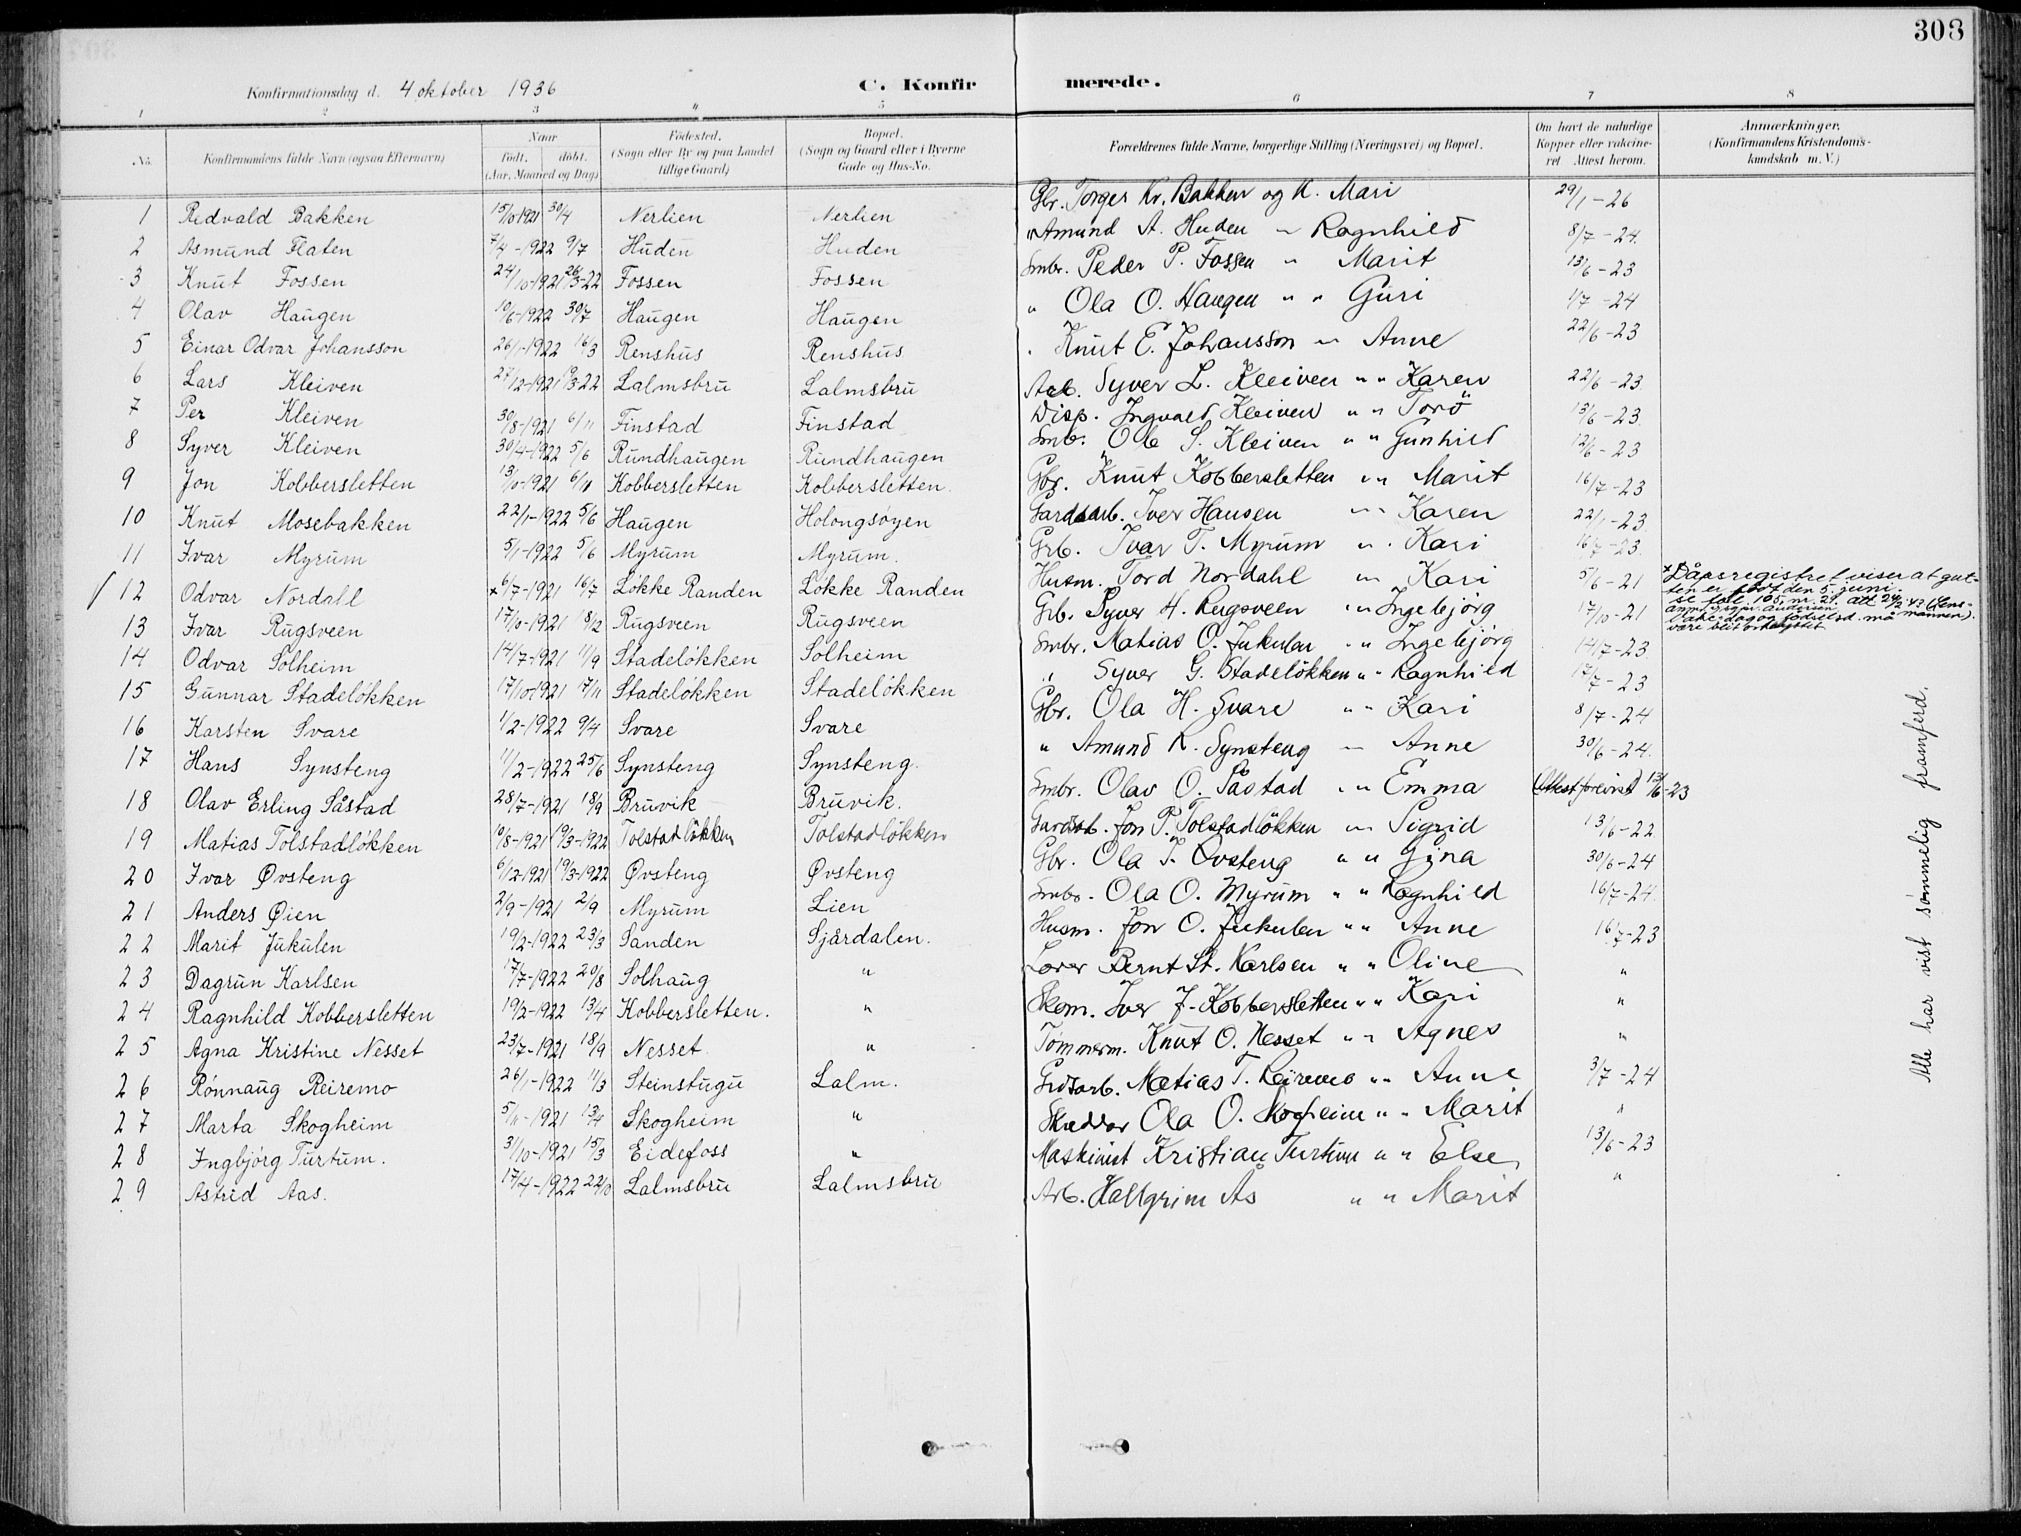 308
Konfirmationsdag d. 4 oktober 1936
C. Konfirmerede.
1 2 3 4 5 6 7 8
No.
Konfirmandens fulde Navn (ogsaa Efternavn)
Naar født. døbt. (Aar, Maaned og Dag)
Fødested. (Sogn eller By og paa Landet tillige Gaard)
Bopæl. (Sogn og Gaard eller i Byerne Gade og Hus-No.
Forældrenes fulde Navne, borgerlige Stilling (Næringsvei) og Bopæl.
Om havt de naturlige Kopper eller vakcineret Attest herom.
Anmærkninger. (Konfirmandens Kristendomskundskab m. V.)
1 Redvald Bakken 15/10 1921 30/4 Nerlien Nerlien Gbr. Torger Kr. Bakken og K. Mari 29/1-26
2 Asmund Flaten 7/4-1922 9/7 Huden Huden " Amund A. Huden " Ragnhild 8/7-24.
3 Knut Fossen 24/10-1921 26/3-22 Fossen Fossen Smbr. Peder P. Fossen " Marit 13/6-23
4 Olav Haugen 10/6-1922 30/7 Haugen Haugen " Ola O. Haugen " " Guri 1/7-24
5 Einar Odvar Johansson 26/1-1922 16/3 Renshus Renshus " Knut E. Johansson " Anne 22/6-23
6 Lars Kleiven 27/12-1921 19/3-22 Lalmsbru Lalmsbru Arb. Syver L. Kleiven " " Karen 22/6-23.
7 Per Kleiven 30/8-1921 6/11 Finstad Finstad Disp. Ingvald Kleiven " " Torø 13/6-23.
8 Syver Kleiven 30/4-1922 5/6 Rundhaugen Rundhaugen Smb. Ole S. Kleiven " " Gunhild 12/6-23
9 Jon Kobbersletten 13/10-1921 6/11 Kobbersletten Kobbersletten. Gbr. Knut Kobbersletten " " Marit 16/7-23
10 Knut Mosebakken 22/1-1922 5/6 Haugen Holongsøyen Gardsarb. Iver Hansen " " Karen 22/1-23
11 Ivar Myrum 5/1-1922 5/6 Myrum Myrum. Grb. Ivar T. Myrum " . Kari 16/7-23.
12 Odvar Nordahl x 6/7-1921 16/7 Løkke Randen Løkke Randen Husm. Tord Nordahl " Kari 5/6-21 x Dåpsregistret viser at gutten er født den 5. juni.
se fol. 105, nr. 29. Att 24/2 43 (Lensmannen).
13 Ivar Rugsveen 17/10-1921 18/12 Rugsveen Rugsveen Grb. Syver H. Rugsveen " " Ingebjørg 17/10-21
14 Odvar Solheim 14/7-1921 11/9 Stadeløkken Solheim Smbr. Matias O. Jukulen " " Ingebjørg 14/7-23.
15 Gunnar Stadeløkken 17/10 1921 17/11 Stadeløkken Stadeløkken " Syver G. Stadeløkken " " Ragnhild 17/7-23
16 Karsten Svare 1/2-1922 9/4 Svare Svare Gbr. Ola H. Svare " " Kari 8/7-24
17 Hans Synsteng 11/2-1922 25/6 Synsteng Synsteng. " Amund K. Synsteng " Anne 30/6-24.
18 Olav Erling Såstad 28/7-1921 18/9 Bruvik Bruvik. Smbr. Olav O. Såstad " " Emma (Attest forevist) 13/6-23
19 Matias Tolstadløkken 10/8-1921 19/3-1922 Tolstadløkken Tolstadløkken Gardsarb. Jon P. Tolstadløkken " " Sigrid 13/6-22
20 Ivar Øvsteng 6/12-1921 19/3-1922 Øvsteng Øvsteng Gbr. Ola I. Øvsteng " " Gina 30/6-24
21 Anders Øien 2/9-1921 2/9 Myrum Lien Smbr. Ola O. Myrum " " Ragnhild 16/7-24.
22 Marit Jukulen 19/2-1922 23/3 Sanden Sjårdalen. Husm. Jon O. Jukulen " " Anne 16/7-23
23 Dagrun Karlsen 17/7-1922 20/8 Solhaug " Lærer Bernt St. Karlsen " " Oline "
24 Ragnhild Kobbersletten 19/2-1922 13/4 Kobbersletten. " Skom. Iver J. Kobbersletten " " Kari "
25 Agna Kristine Nesset 23/7-1921 18/9 Nesset " Tømmerm. Knut O. Nesset " " Agnes "
26 Rønnaug Reiremo 26/1-1922 11/3 Steinstugu Lalm. Grdsarb. Matias T. Reiremo " " Anne 3/7-24
27 Marta Skogheim 5/11-1921 13/4 Skogheim " Skræddar Ola O. Skogheim " " Marit "
28 Ingbjørg Turtum. 31/10-1921 15/3 Eidefoss " Maskinist Kristian Turtum " " Else 13/6-23
29 Astrid Aas. 17/4-1922 22/10 Lalmsbru Lalmsbru Arb. Hallgrim Ås " " Marit "
Alle har vist sømmelig framferd.